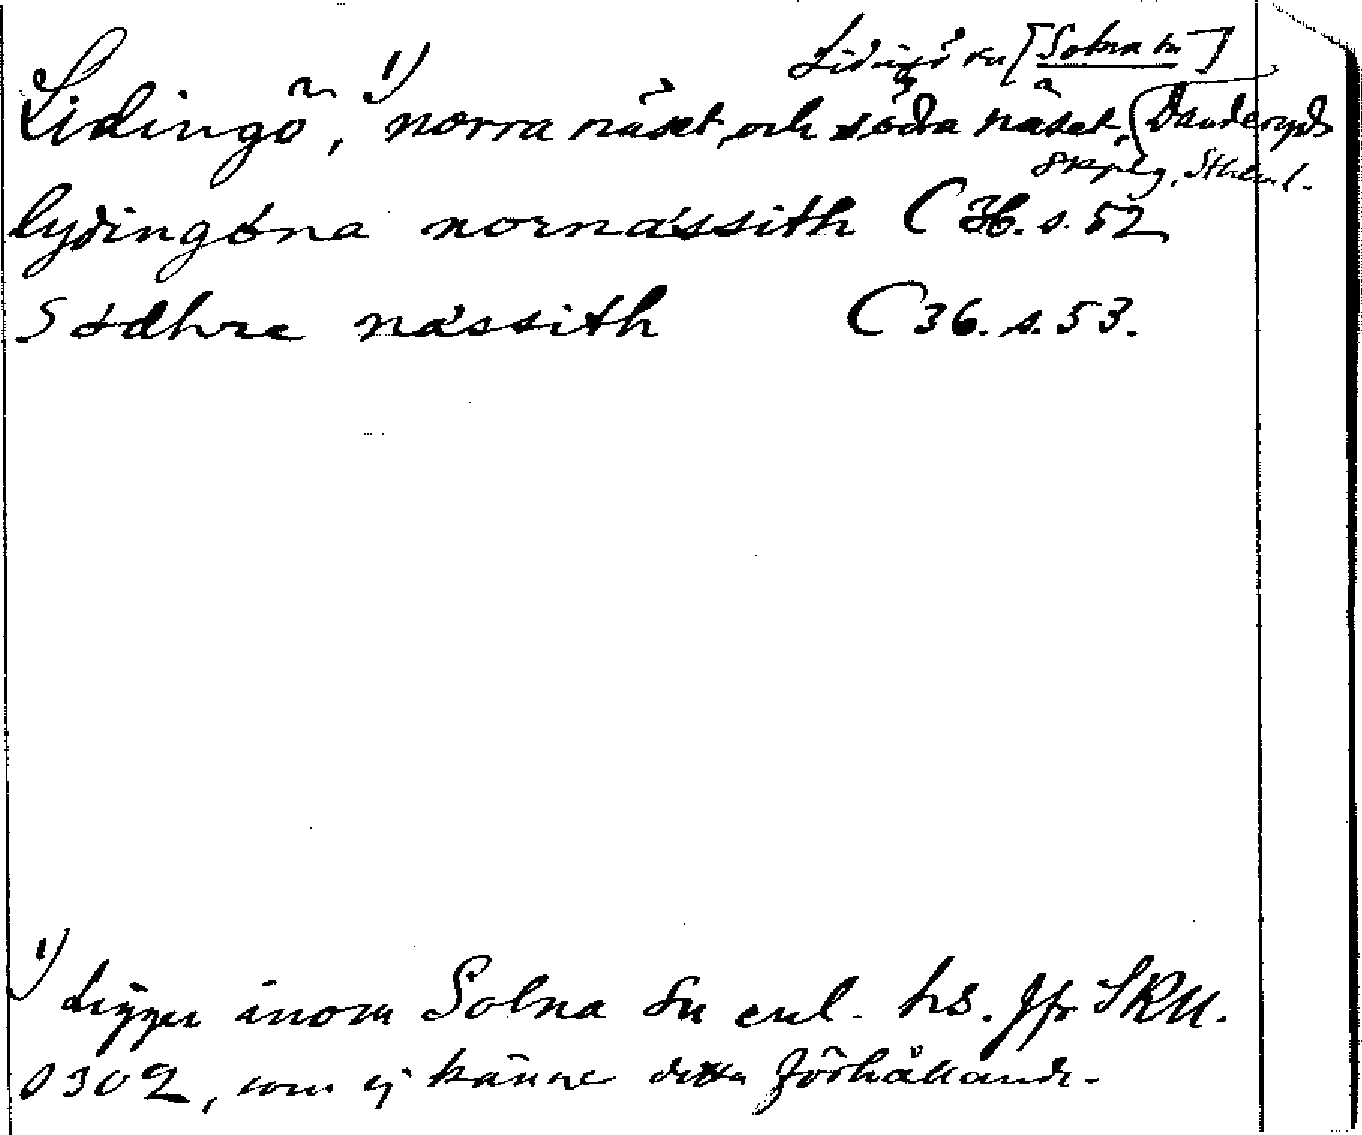 Lidingö sn [Solna sn]
Lidingö, 1) norra näset och södra näset, (Danderyds
skplg, Sthlms l.
lyðingóna nornássith C 36. s. 52
Södhre nássith C 36. s. 53.
1) Ligger inom Solna sn enl. hs. Jfr SRU.
0302, som ej känne detta förhållande.